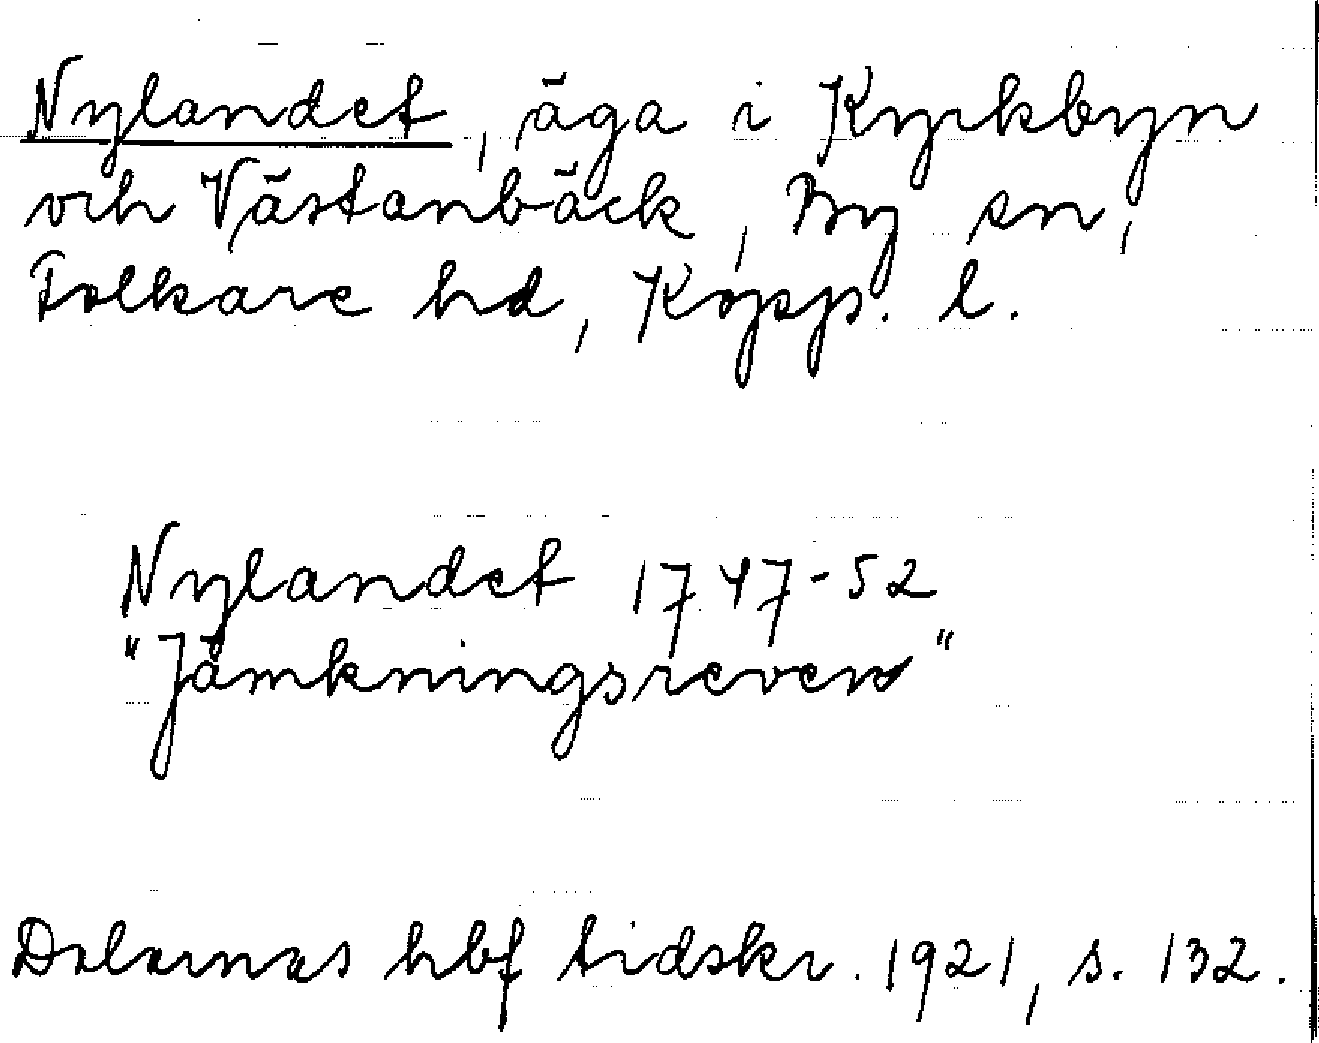 Nylandet, äga i Kyrkbyn
och Västanbäck, By sn,
Folkare hd, Kopp. l.
Nylandet 1747-52
"Jämkningsreven"
Dalarnas hbf tidskr. 1921, s. 132.